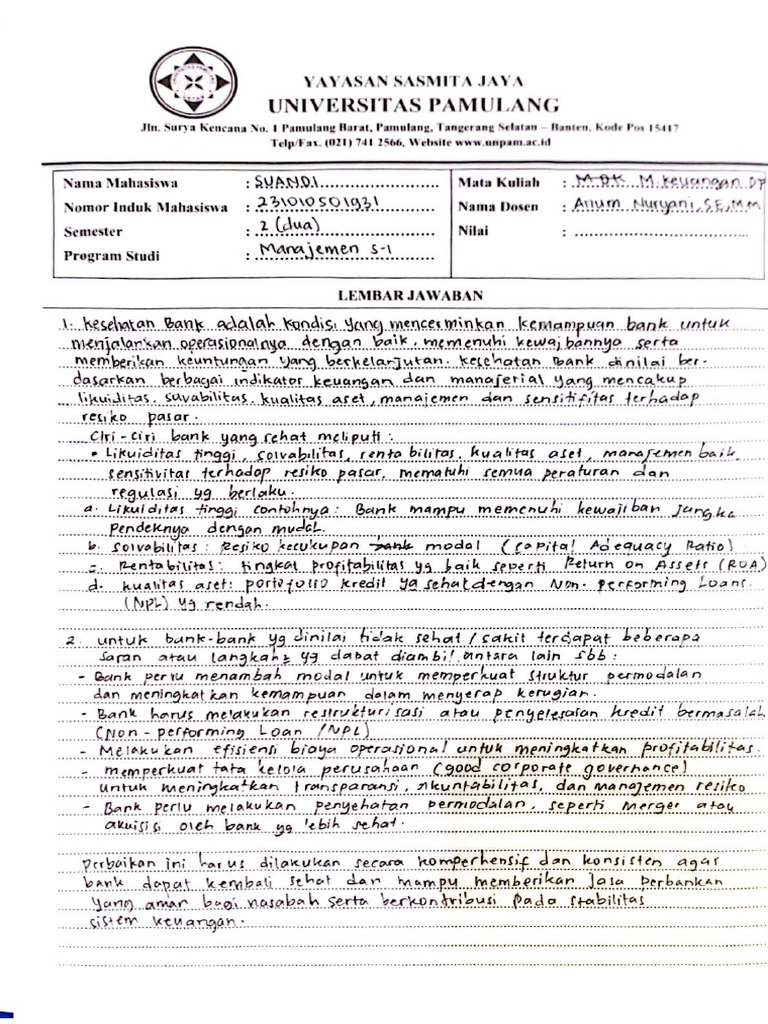 YAYASAN SASMITA JAYA
UNIVERSITAS PAMULANG
Jln. Surya Kencana No. 1 Pamulang Barat, Pamulang, Tangerang Selatan – Banten, Kode Pos 15417
Telp/Fax. (021) 741 2566, Website www.unpam.ac.id
Nama Mahasiswa : SUANDI
Nomor Induk Mahasiswa : 231010501931
Semester : 2 (dua)
Program Studi : Manajemen S-1
Mata Kuliah : M. Keuangan Dp
Nama Dosen : Arium Nuryani, S.E, M.M
Nilai :
LEMBAR JAWABAN
1. Kesehatan Bank adalah kondisi yang mencerminkan kemampuan bank untuk
menjalankan operasionalnya dengan baik, memenuhi kewajbannya serta
memberikan keuntungan yang berkelanjutan. kesehatan Bank dinilai ber-
dasarkan berbagai indikator keuangan dan manajerial yang mencakup
likuiditas, savabilitas, kualitas aset, manajemen dan sensitifitas terhadap
resiko pasar.
Ciri-ciri bank yang sehat meliputi :
• Likuiditas tinggi, solvabilitas, rentabilitas, kualitas aset, manajemen baik,
sensitivitas terhadap resiko pasar, mematuhi semua peraturan dan
regulasi yg berlaku.
a. Likuiditas tinggi contohnya : Bank mampu memenuhi kewajiban jangka
pendeknya dengan mudah.
b. Solvabilitas : Resiko kecukupan bank modal (Capital Adequacy Ratio)
c. Rentabilitas : tingkat profitabilitas yg baik seperti Return on Assets (ROA)
d. kualitas aset : portofolio kredit yg sehat dengan Non-performing Loans
(NPL) yg rendah.
2. untuk bank-bank yg dinilai tidak sehat / sakit terdapat beberapa
saran atau langkah2 yg dapat diambil antara lain sbb :
- Bank perlu menambah modal untuk memperkuat struktur permodalan
dan meningkatkan kemampuan dalam menyerap kerugian.
- Bank harus melakukan restrukturisasi atau penyelesaian kredit bermasalah
(Non-performing Loan / NPL)
- Melakukan efisiensi biaya operasional untuk meningkatkan profitabilitas.
- memperkuat tata kelola perusahaan (good corporate governance)
untuk meningkatkan transparansi, akuntabilitas, dan manajemen resiko
- Bank perlu melakukan penyehatan permodalan, seperti Merger atau
akuisisi oleh bank yg lebih sehat.
perbaikan ini harus dilakukan secara komperhensif dan konsisten agar
bank dapat kembali sehat dan mampu memberikan jasa perbankan
yang aman bagi nasabah serta berkontribusi pada stabilitas
sistem keuangan.